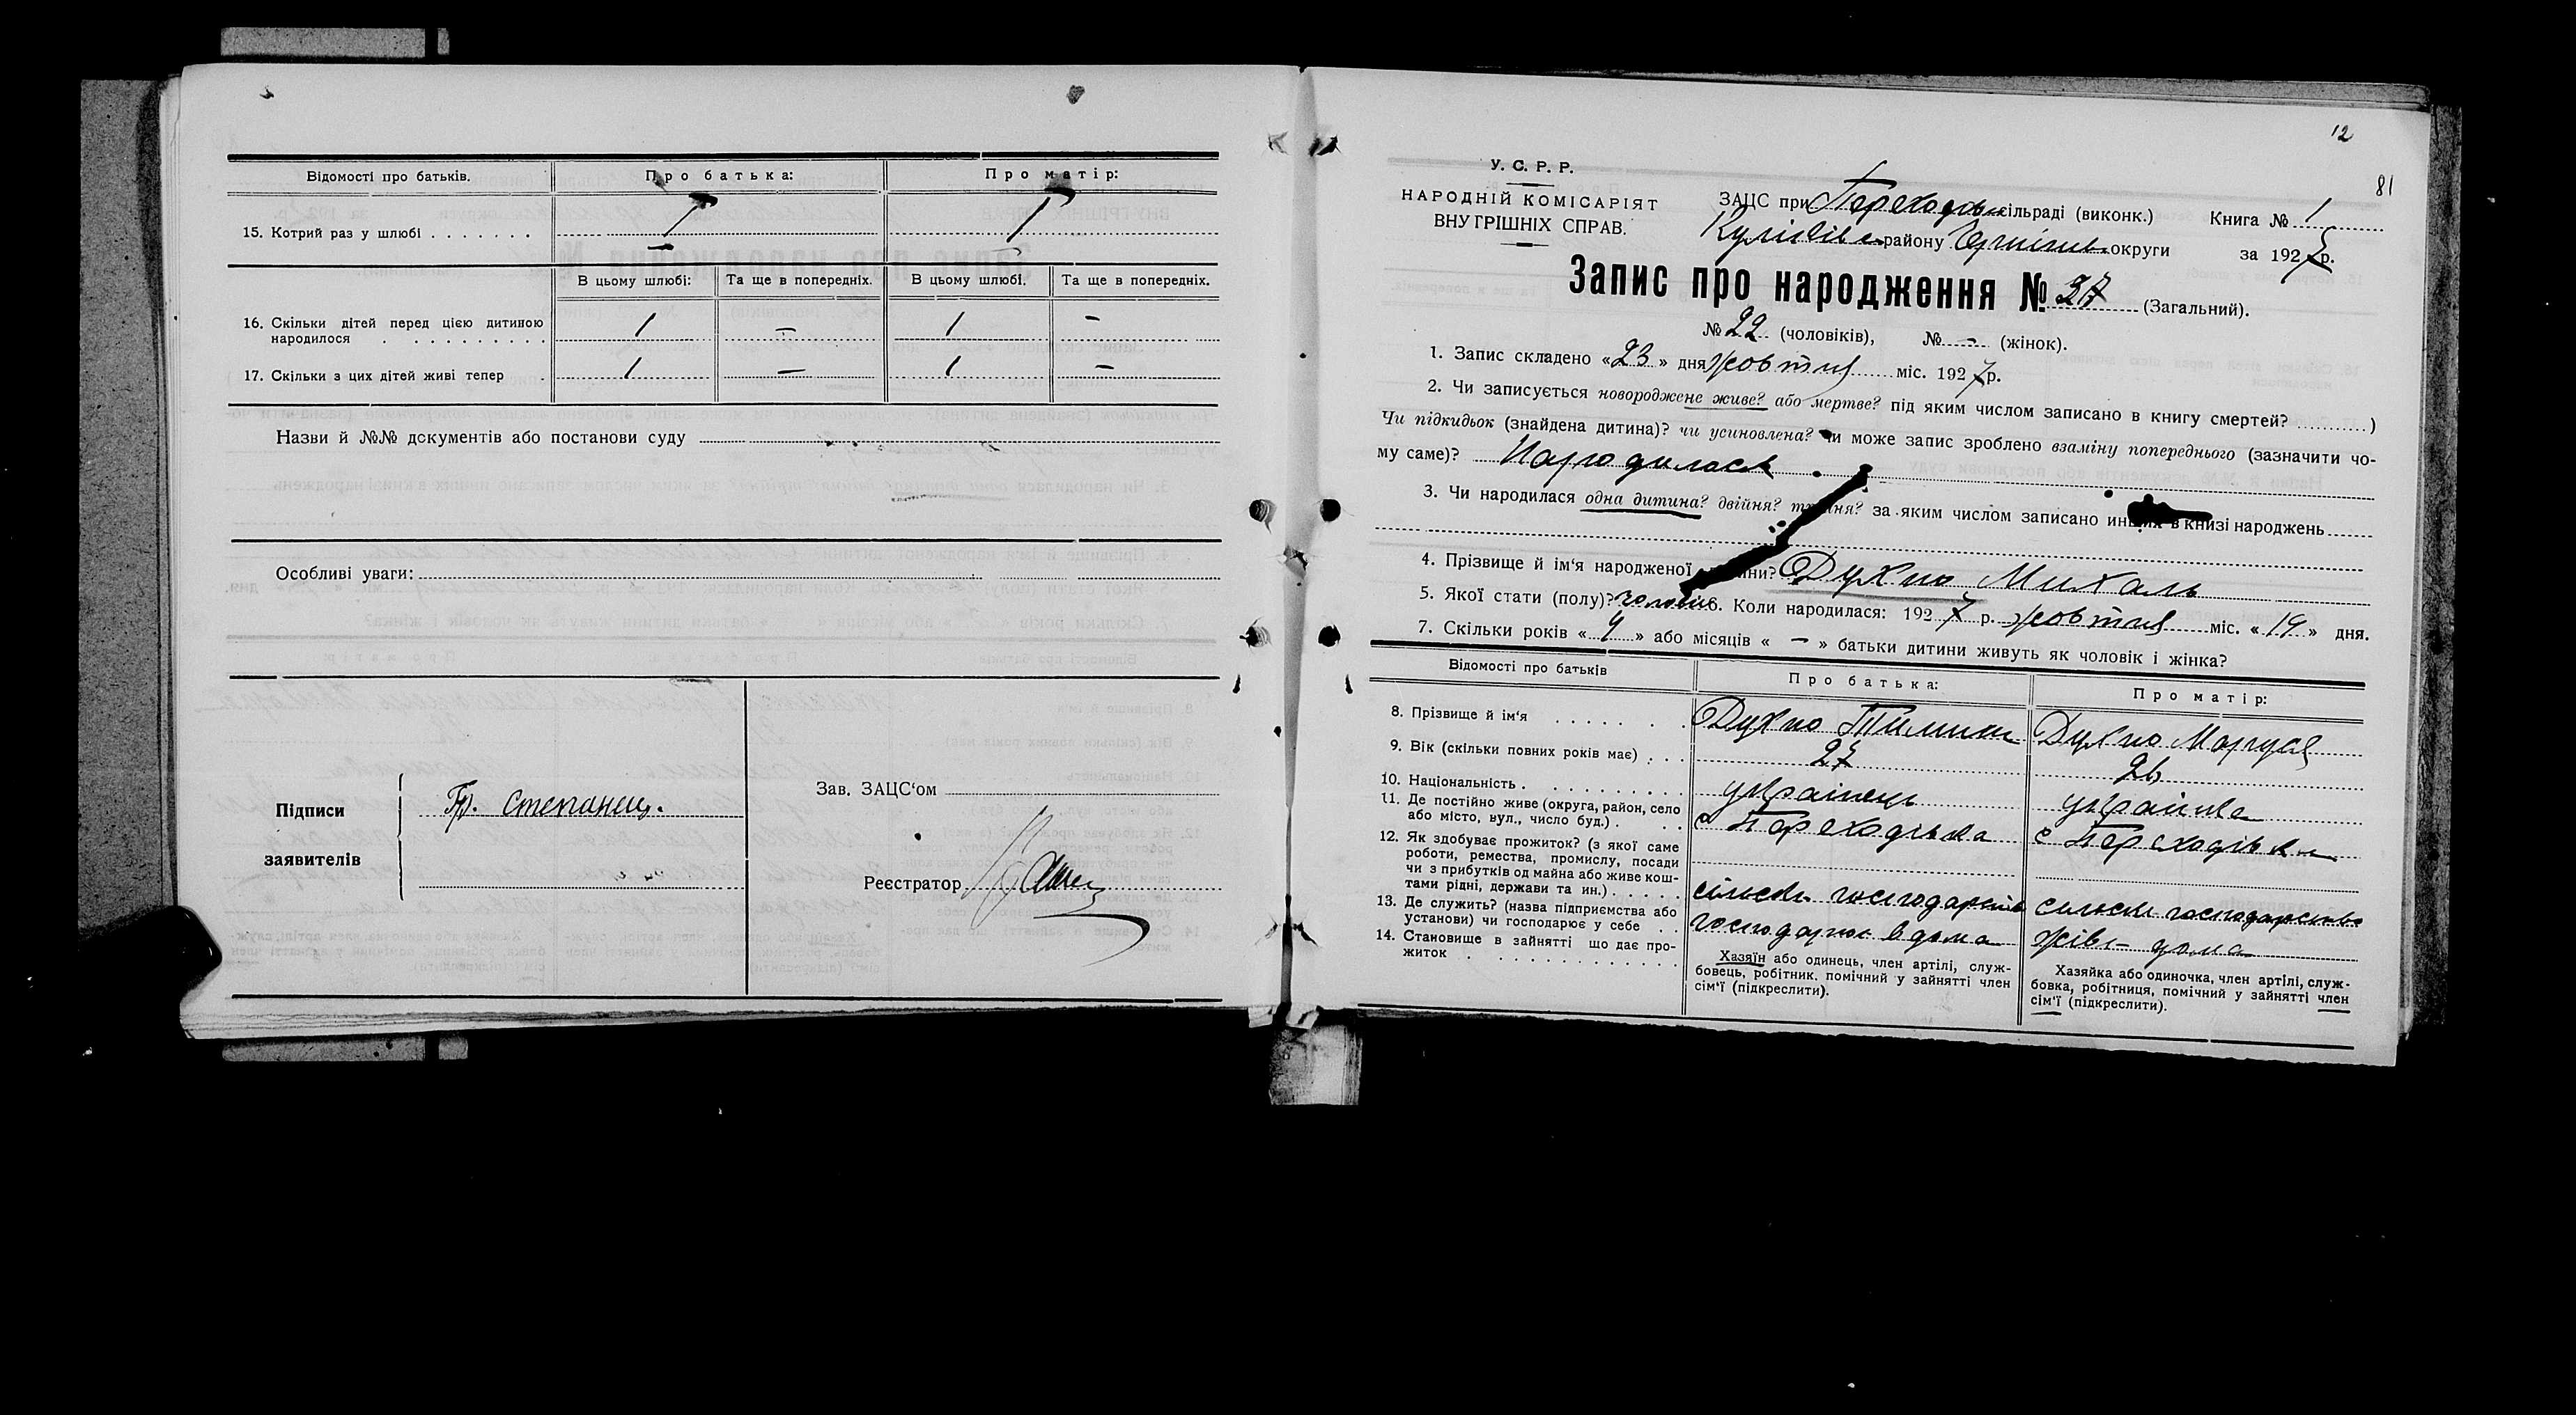 Відомості про батьків. Про батька: Про матір:
15. Котрий раз у шлюбі . . . . . . . 1 1
В цьому шлюбі: Та ще в попередніх. В цьому шлюбі. Та ще в попередніх.
16. Скільки дітей перед цією дитиною
народилося . . . . . . . . . . 1 — 1 —
17. Скільки з цих дітей живі тепер . 1 — 1 —
Назви й №№ документів або постанови суду
Особливі уваги:
Підписи
заявителів
Гр. Степанец.
Зав. ЗАЦС‘ом
Реєстратор
12
81
У. С. Р. Р.
НАРОДНІЙ КОМІСАРІЯТ
ВНУТРІШНІХ СПРАВ.
ЗАЦС при Переходів сільраді (виконк.) Книга № 1
Куликівс району Чернігівс округи за 1927 р.
Запис про народження № 37 (Загальний).
№ 22 (чоловіків), № — (жінок).
1. Запис складено «23» дня жовтня міс. 1927 р.
2. Чи записується новороджене живе? або мертве? під яким числом записано в книгу смертей? ...........)
Чи підкидьок (знайдена дитина)? чи усиновлена? чи може запис зроблено взаміну попереднього (зазначити чо-
му саме)? Народилася
3. Чи народилася одна дитина? двійня? трійня? за яким числом записано инших в книзі народжень
4. Прізвище й ім‘я народженої дитини? Духно Михаль
5. Якої стати (полу)? чоловіч 6. Коли народилася: 1927 р. жовтня міс. «19» дня.
7. Скільки років «4» або місяців « — » батьки дитини живуть як чоловік і жінка?
Відомості про батьків Про батька: Про матір:
8. Прізвище й ім‘я . . . . . . . . Духно Тимиш Духно Маруся
9. Вік (скільки повних років має) . . . 27 26
10. Національність . . . . . . . . . . українець українка
11. Де постійно живе (округа, район, село
або місто, вул., число буд.) . . . с Переходівка с Переходівка
12. Як здобуває прожиток? (з якої саме
роботи, ремества, промислу, посади
чи з прибутків од майна або живе кош-
тами рідні, держави та ин.) . . . . . сільськ господарств сільськ господарство
13. Де служить? (назва підприємства або
установи) чи господарює у себе . . господарює вдома живе дома
14. Становище в зайнятті що дає про-
житок . . . . . . . . . . . . . .
Хазяїн або одинець, член артілі, служ-
бовець, робітник, помічний у зайнятті член
сім‘ї (підкреслити).
Хазяйка або одиночка, член артілі, служ-
бовка, робітниця, помічний у зайнятті член
сім‘ї (підкреслити).